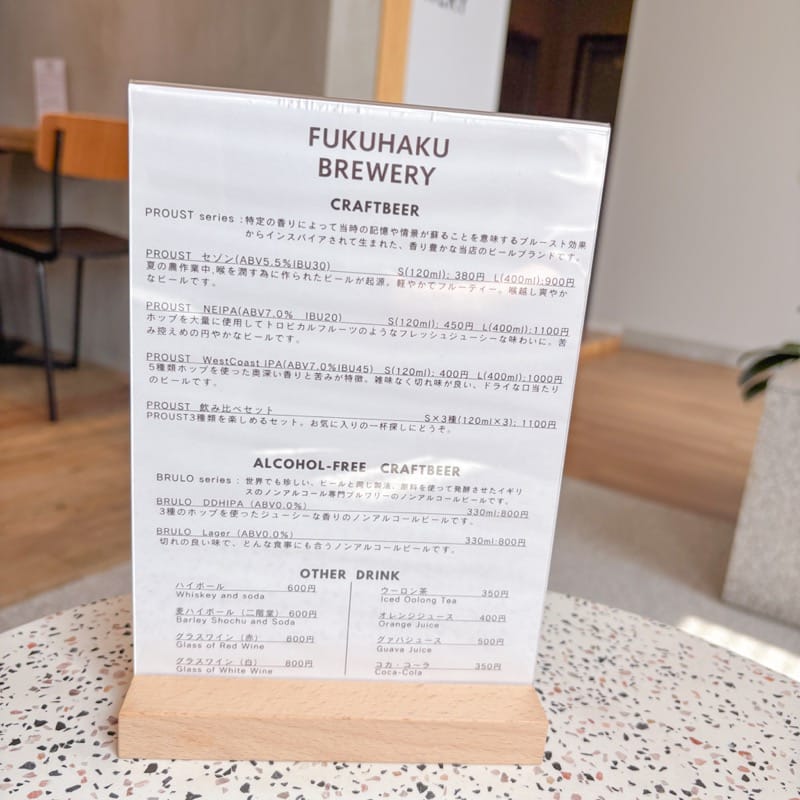 FUKUHAKU
BREWERY
CRAFTBEER
PROUST series：特定の香りによって当時の記憶や情景が蘇ることを意味するプルースト効果
からインスパイアされて生まれた、香り豊かな当店のビールブランドです。
PROUST セゾン(ABV5.5%IBU30) S(120ml); 380円 L(400ml);900円
夏の農作業中,喉を潤す為に作られたビールが起源。軽やかでフルーティー。喉越し爽やか
なビールです。
PROUST NEIPA(ABV7.0% IBU20) S(120ml); 450円 L(400ml);1100円
ホップを大量に使用してトロピカルフルーツのようなフレッシュジューシーな味わいに。苦
み控えめの円やかなビールです。
PROUST WestCoast IPA(ABV7.0%IBU45) S(120ml); 400円 L(400ml);1000円
5種類ホップを使った奥深い香りと苦みが特徴。雑味なく切れ味が良い、ドライな口当たり
のビールです。
PROUST 飲み比べセット S×3種(120ml×3); 1100円
PROUST3種類を楽しめるセット。お気に入りの一杯探しにどうぞ。
ALCOHOL-FREE CRAFTBEER
BRULO series：世界でも珍しい、ビールと同じ製法、原料を使って発酵させたイギリ
スのノンアルコール専門ブルワリーのノンアルコールビールです。
BRULO DDHIPA (ABV0.0%) 330ml:800円
3種のホップを使ったジューシーな香りのノンアルコールビールです。
BRULO Lager(ABV0.0%) 330ml:800円
切れの良い味で、どんな食事にも合うノンアルコールビールです。
OTHER DRINK
ハイボール 600円
Whiskey and soda
麦ハイボール（二階堂） 600円
Barley Shochu and Soda
グラスワイン（赤） 800円
Glass of Red Wine
グラスワイン（白） 800円
Glass of White Wine
ウーロン茶 350円
Iced Oolong Tea
オレンジジュース 400円
Orange Juice
グァバジュース 500円
Guava Juice
コカ・コーラ 350円
Coca-Cola